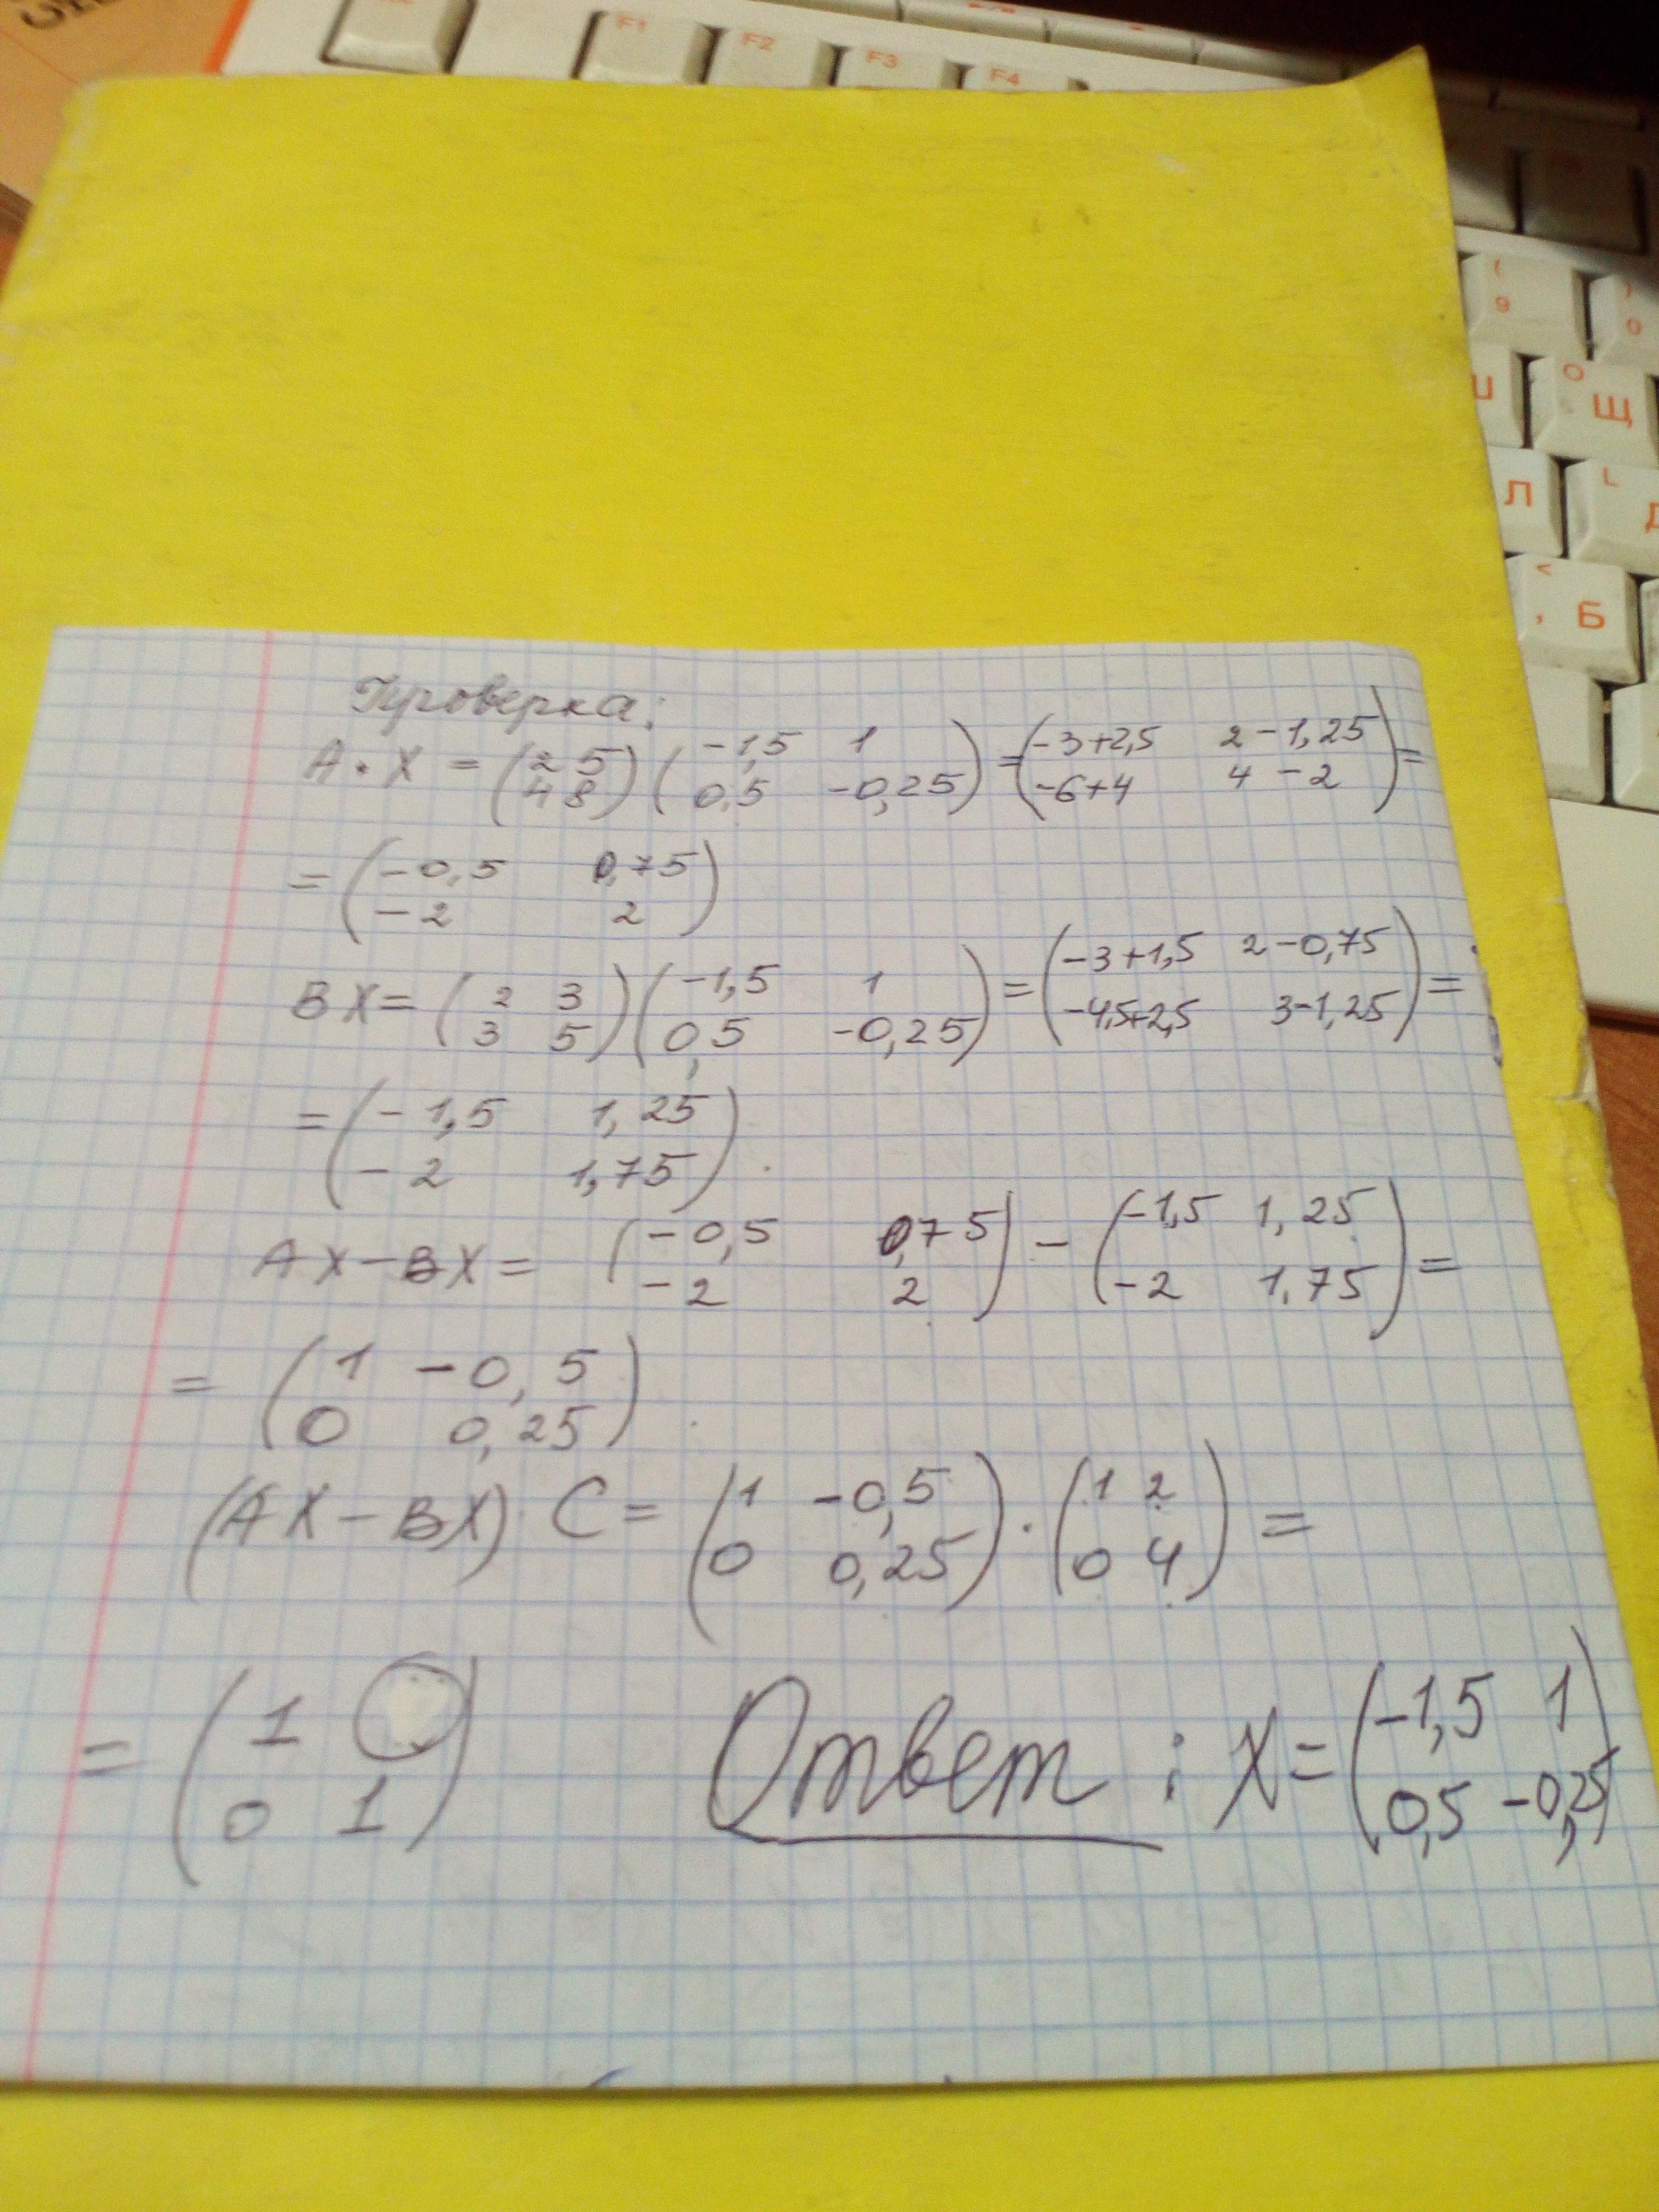 F1 F2 F3 F4
( 9 ) 0
О Щ
Л L Д
< , Б
Проверка:
A · X = (2 5 / 4 8) (-1,5 1 / 0,5 -0,25) = (-3+2,5 2-1,25 / -6+4 4-2) =
= (-0,5 0,75 / -2 2)
BX = (2 3 / 3 5) (-1,5 1 / 0,5 -0,25) = (-3+1,5 2-0,75 / -4,5+2,5 3-1,25) =
= (-1,5 1,25 / -2 1,75).
AX-BX = (-0,5 0,75 / -2 2) - (-1,5 1,25 / -2 1,75) =
= (1 -0,5 / 0 0,25).
(AX-BX) C = (1 -0,5 / 0 0,25) · (1 2 / 0 4) =
= (1 0 / 0 1) Ответ: X = (-1,5 1 / 0,5 -0,25)